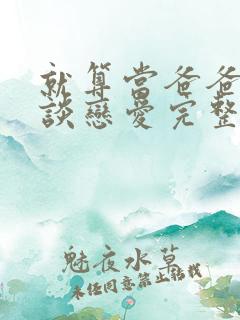 就算當爸爸
談戀愛完整
魅夜水草
未經同意禁止轉載